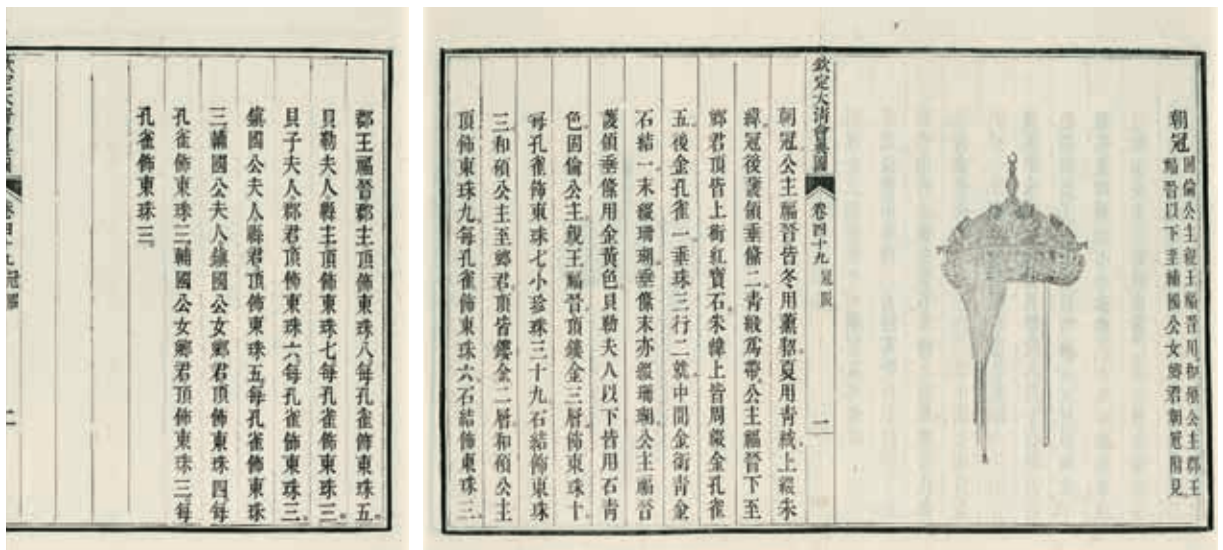 朝冠
固倫公主親王福晉用和碩公主郡王
福晉以下至輔國公女鄉君朝冠附見
欽定大清會典圖 卷四十九 冠服 一
朝冠公主福晉皆冬用薰貂夏用青絨上綴朱
緯冠後護領垂絛二青緞爲帶公主福晉下至
鄉君頂皆上銜紅寶石朱緯上皆周綴金孔雀
五後金孔雀一垂珠三行二就中間金銜青金
石結一末綴珊瑚垂絛末亦綴珊瑚公主福晉
護領垂絛用金黃色貝勒夫人以下皆用石青
色固倫公主親王福晉頂鏤金三層飾東珠十
每孔雀飾東珠七小珍珠三十九石結飾東珠
三和碩公主至鄉君頂皆鏤金二層和碩公主
頂飾東珠九每孔雀飾東珠六石結飾東珠三
郡王福晉郡主頂飾東珠八每孔雀飾東珠五
貝勒夫人縣主頂飾東珠七每孔雀飾東珠三
貝子夫人郡君頂飾東珠六每孔雀飾東珠三
鎮國公夫人縣君頂飾東珠五每孔雀飾東珠
三輔國公夫人鎮國公女鄉君頂飾東珠四每
孔雀飾東珠三輔國公女鄉君頂飾東珠三每
孔雀飾東珠三